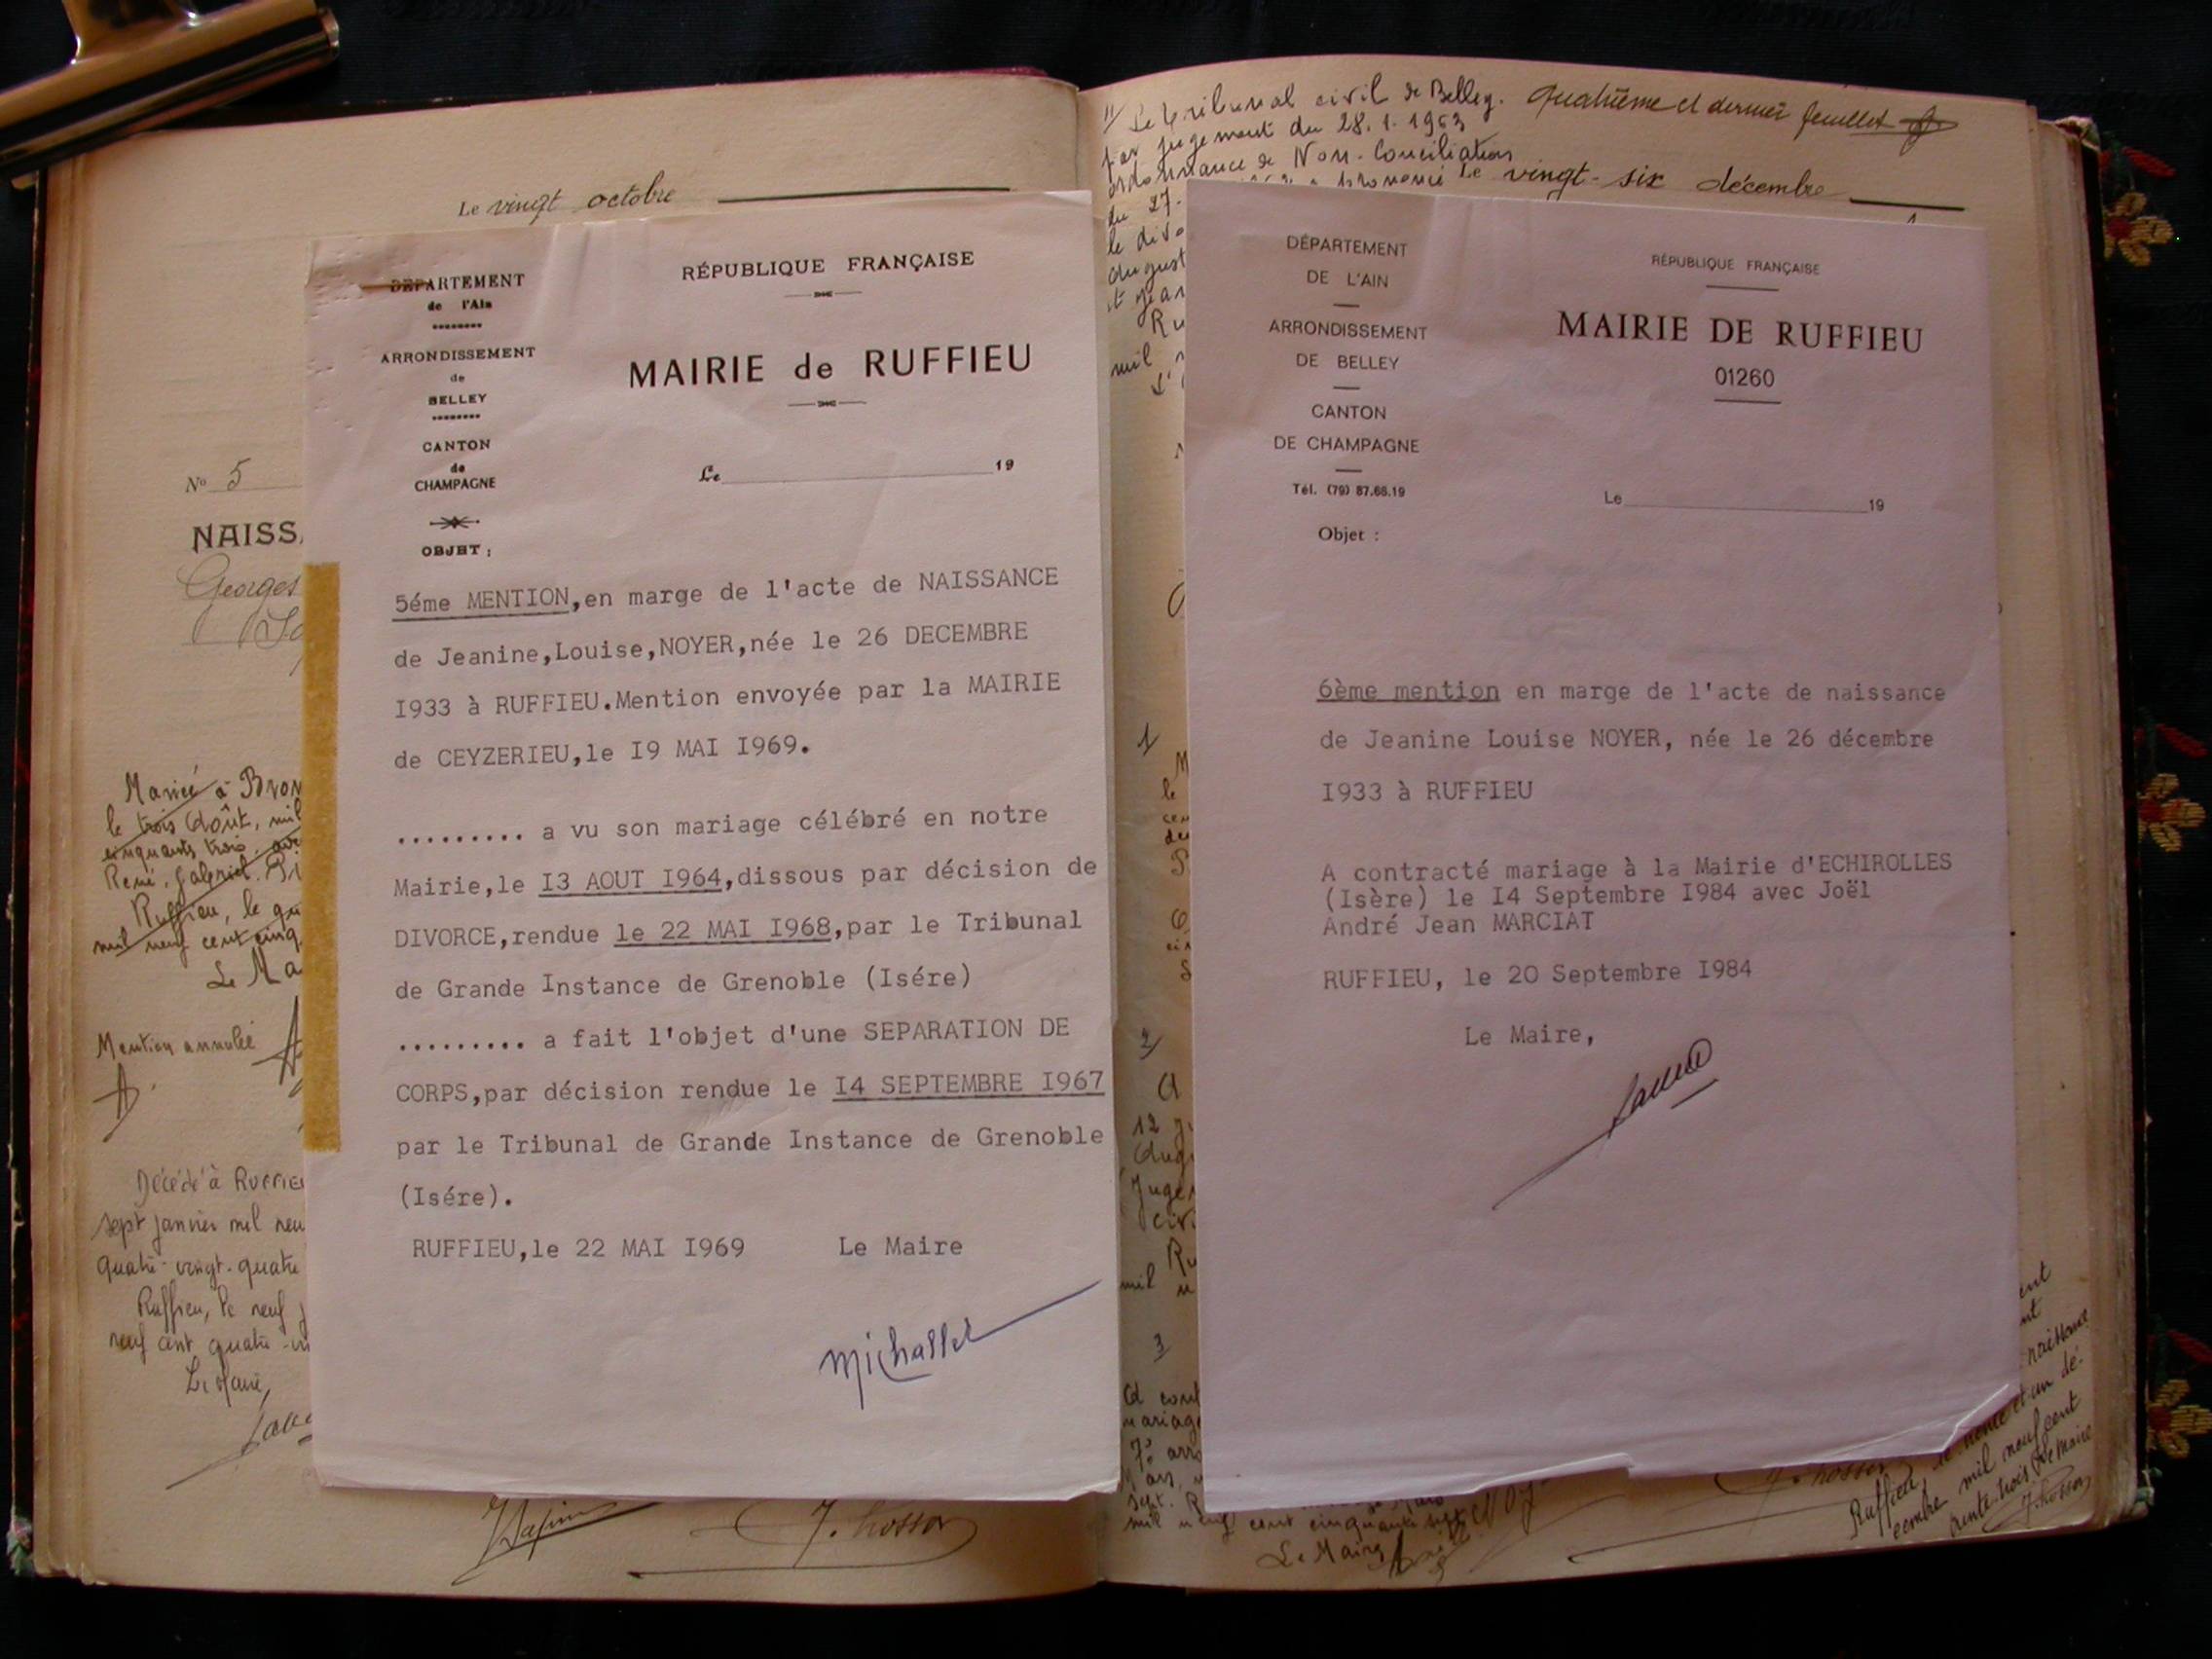 Le vingt octobre
No 5
NAISS
Georges
Marié à Bron
le trois Août, mil
cinquante trois, avec
René, Gabriel
Ruffieu, le
mil neuf cent cinq
Le Ma
Mention annulée
Décédé à RUFFIEU
sept janvier mil neu
quatre-vingt-quatre
Ruffieu, le neuf
neuf cent quatre-vi
Le Maire,
DÉPARTEMENT
de l'Ain
ARRONDISSEMENT
de
BELLEY
CANTON
de
CHAMPAGNE
OBJET :
RÉPUBLIQUE FRANÇAISE
MAIRIE de RUFFIEU
Le 19
5éme MENTION,en marge de l'acte de NAISSANCE
de Jeanine,Louise,NOYER,née le 26 DECEMBRE
I933 à RUFFIEU.Mention envoyée par la MAIRIE
de CEYZERIEU,le I9 MAI I969.
......... a vu son mariage célébré en notre
Mairie,le I3 AOUT I964,dissous par décision de
DIVORCE,rendue le 22 MAI I968,par le Tribunal
de Grande Instance de Grenoble (Isére)
......... a fait l'objet d'une SEPARATION DE
CORPS,par décision rendue le I4 SEPTEMBRE I967
par le Tribunal de Grande Instance de Grenoble
(Isére).
RUFFIEU,le 22 MAI I969 Le Maire
Michallet
J. Rosson
Quatrième et dernier feuillet
Le tribunal civil de Belley.
par jugement du 28.1.1963
ordonnance de Non-Conciliation
Le vingt-six décembre
du 27.
le divo
August
et Jean
Ru
mil
DÉPARTEMENT
DE L'AIN
ARRONDISSEMENT
DE BELLEY
CANTON
DE CHAMPAGNE
Tél. (79) 87.66.19
Objet :
RÉPUBLIQUE FRANÇAISE
MAIRIE DE RUFFIEU
01260
Le 19
6ème mention en marge de l'acte de naissance
de Jeanine Louise NOYER, née le 26 décembre
I933 à RUFFIEU
A contracté mariage à la Mairie d'ECHIROLLES
(Isère) le I4 Septembre I984 avec Joël
André Jean MARCIAT
RUFFIEU, le 20 Septembre I984
Le Maire,
1
2
3
12
Juge
civ
Ru
mil
A cont
mariage
7e arr
sept.
mil neuf cent cinquante sept
Le Maire
naissance
Ruffieu le trente et un dé-
cembre mil neuf cent
trente-trois Le Maire
J. Rosson